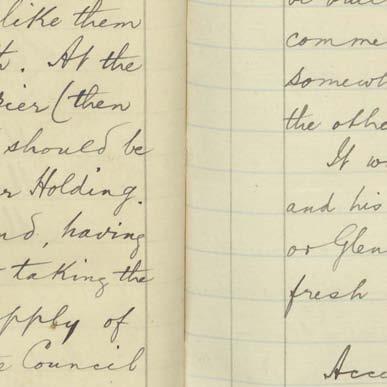 like them
. At the
(then
should be
Holding.
having
taking the
of
Council
comme
somewh
the othe
It w
and his
or Glen
fresh
Acco